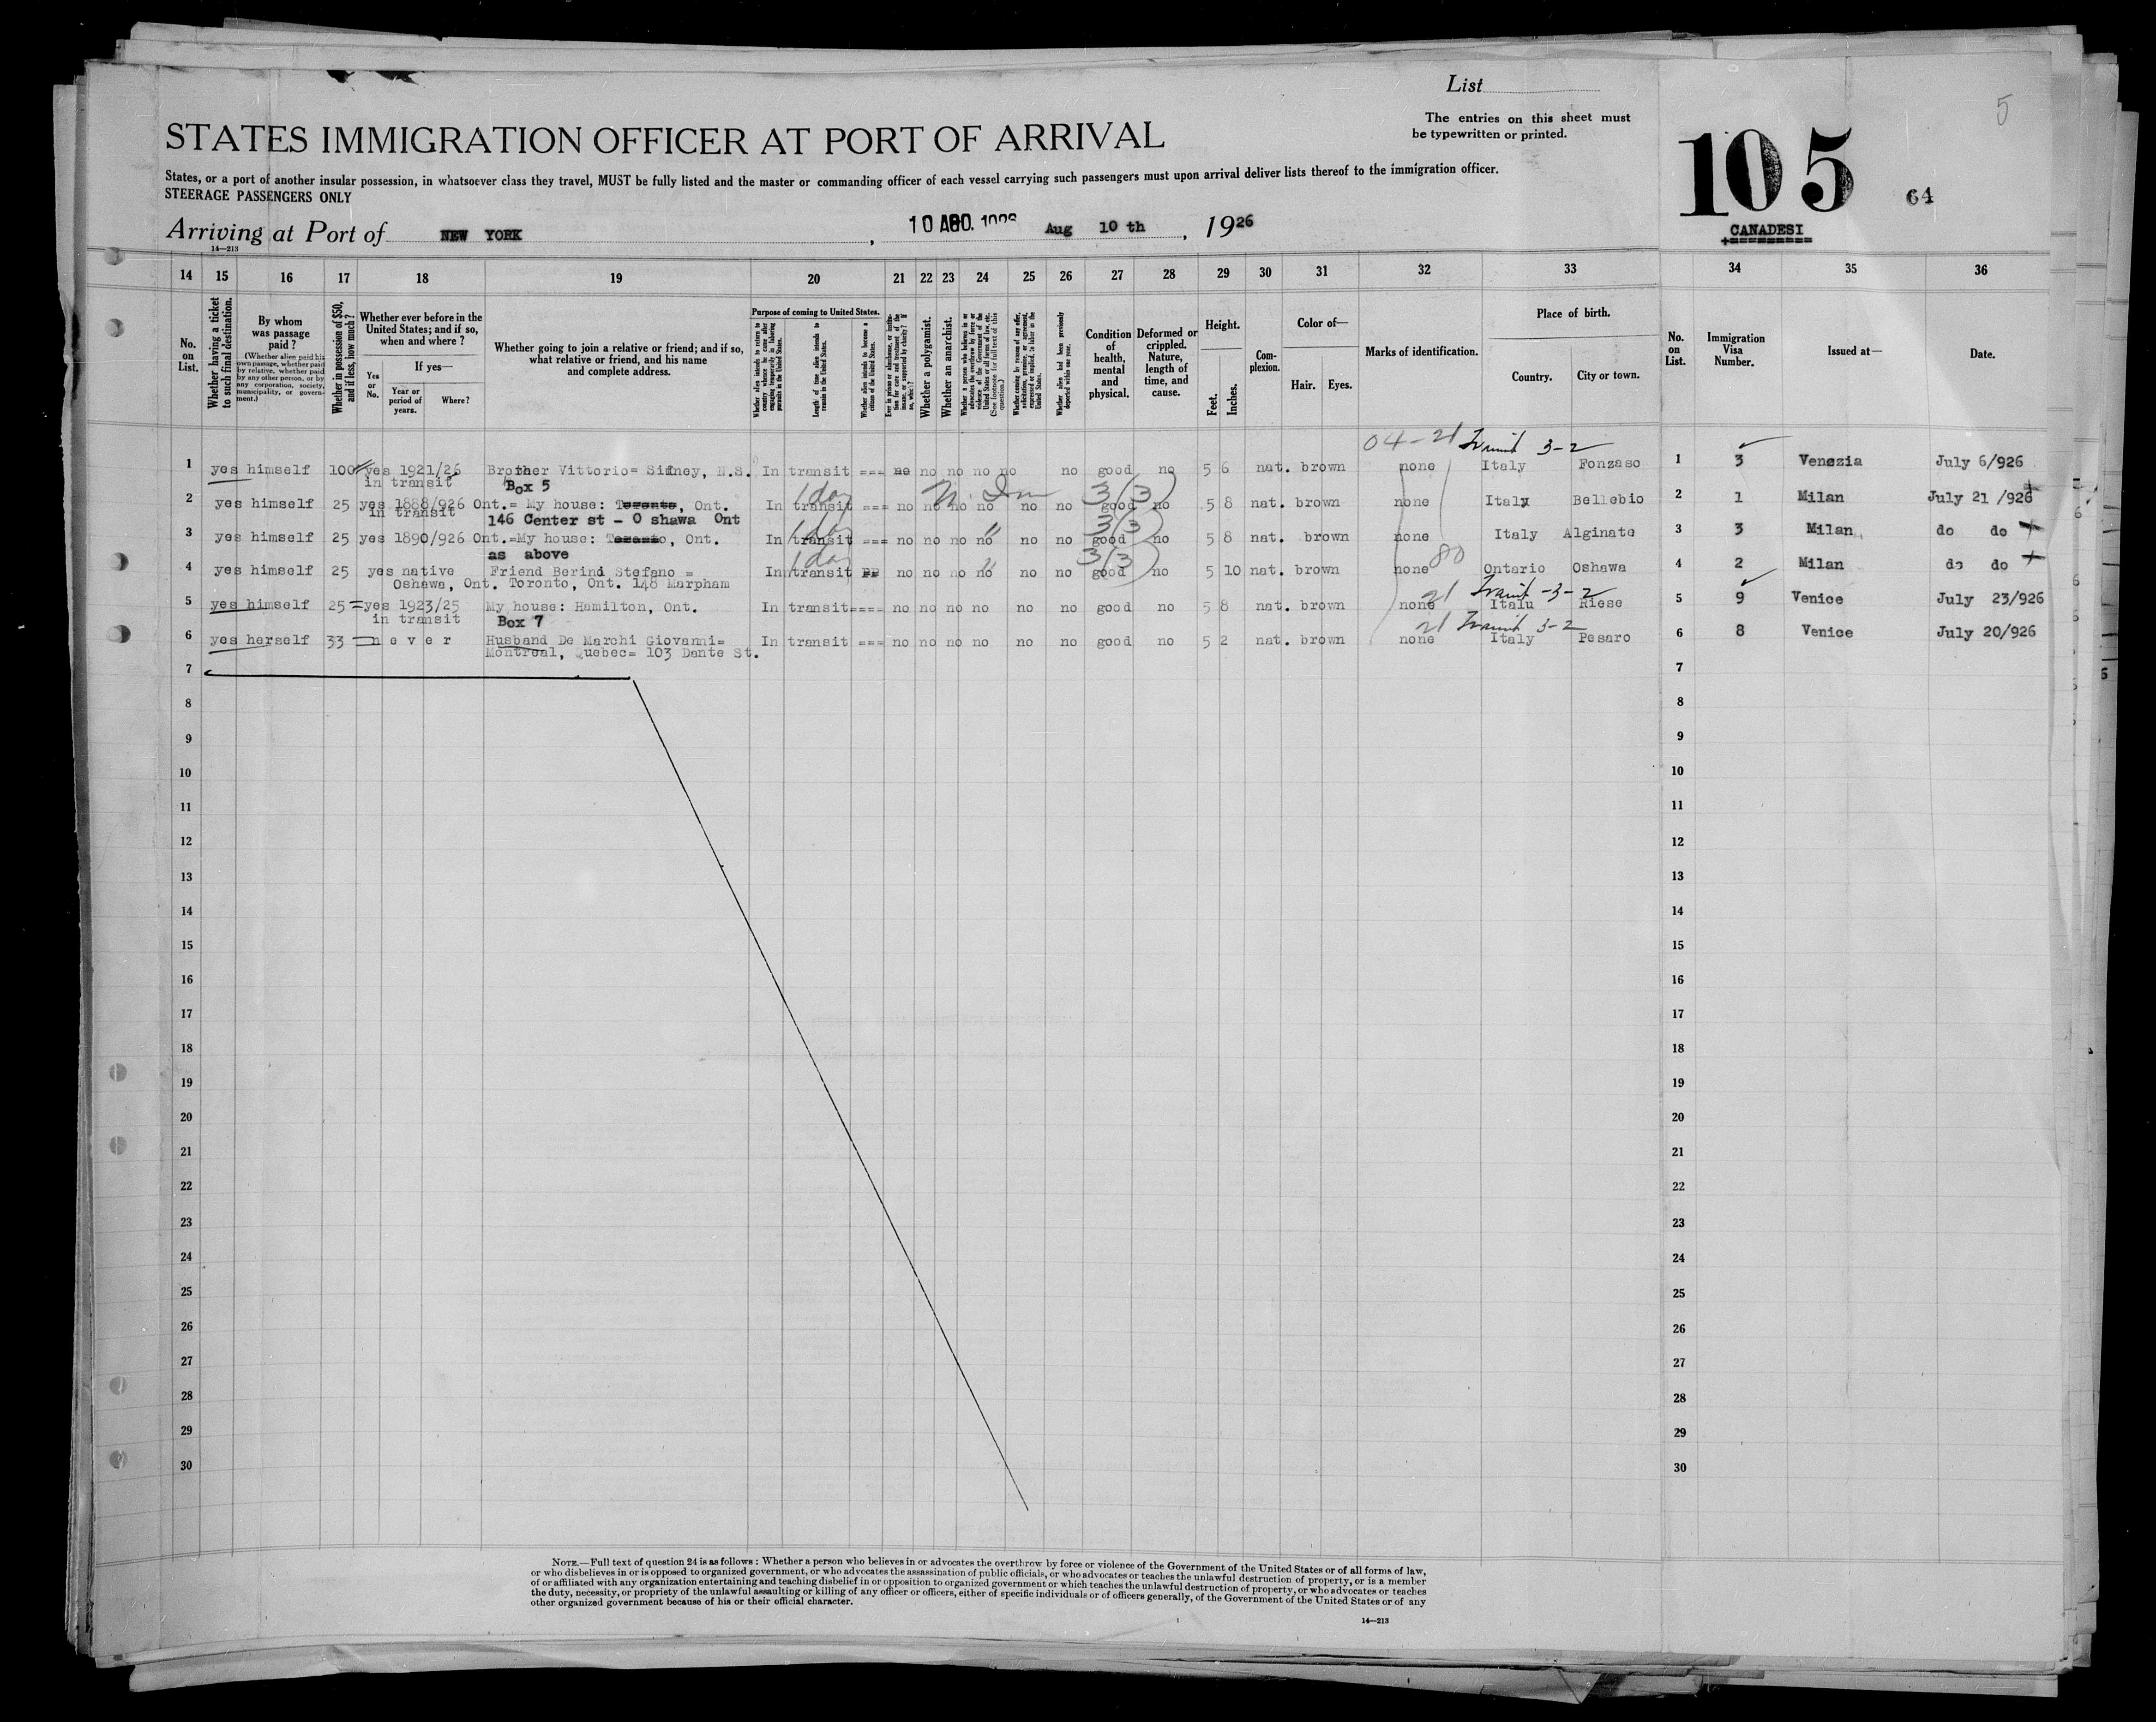 List
The entries on this sheet must
be typewritten or printed.
5
STATES IMMIGRATION OFFICER AT PORT OF ARRIVAL
105
64
CANADESI
States, or a port of another insular possession, in whatsoever class they travel, MUST be fully listed and the master or commanding officer of each vessel carrying such passengers must upon arrival deliver lists thereof to the immigration officer.
STEERAGE PASSENGERS ONLY
Arriving at Port of NEW YORK, 10 AGO. Aug 10 th, 1926
14—213
14 15 16 17 18 19 20 21 22 23 24 25 26 27 28 29 30 31 32 33 34 35 36
No. on List.
Whether having a ticket to such final destination.
By whom was passage paid?
(Whether alien paid his own passage, whether paid by relative, whether paid by any other person, or by any corporation, society, municipality, or government.)
Whether in possession of $50, and if less, how much?
Whether ever before in the United States; and if so, when and where?
If yes—
Yes or No.
Year or period of years.
Where?
Whether going to join a relative or friend; and if so, what relative or friend, and his name and complete address.
Purpose of coming to United States.
Length of time alien intends to remain in the United States.
Whether alien intends to become a citizen of the United States.
Whether a polygamist.
Whether an anarchist.
Condition of health, mental and physical.
Deformed or crippled. Nature, length of time, and cause.
Height.
Feet.
Inches.
Complexion.
Color of—
Hair. Eyes.
Marks of identification.
Place of birth.
Country. City or town.
No. on List.
Immigration Visa Number.
Issued at—
Date.
04-21 Transit 3-2
1 yes himself 100 yes 1921/26 Brother Vittorio= Sidney, N.S. In transit === no no no no no no good no 5 6 nat. brown none Italy Fonzaso 1 3 Venezia July 6/926
in transit Box 5
2 yes himself 25 yes 1888/926 Ont.= My house: Toronto, Ont. In transit === no no no no no no good no 5 8 nat. brown none Italy Bellebio 2 1 Milan July 21 /926
in transit 146 Center st - O shawa Ont
1 day 3/3
3 yes himself 25 yes 1890/926 Ont.=My house: Toronto, Ont. In transit === no no no no no no good no 5 8 nat. brown none Italy Alginate 3 3 Milan do do
as above
1 day 3/3 80
4 yes himself 25 yes native Friend Berind Stefano = In transit no no no no no no good no 5 10 nat. brown none Ontario Oshawa 4 2 Milan do do
Oshawa, Ont. Toronto, Ont. 148 Marpham
21 Transit -3-2
5 yes himself 25 =yes 1923/25 My house: Hamilton, Ont. In transit==== no no no no no no good no 5 8 nat. brown none Italu Riese 5 9 Venice July 23/926
in transit Box 7
21 Transit 3-2
6 yes herself 33 =n e v e r Husband De Marchi Giovanni= In transit === no no no no no no good no 5 2 nat. brown none Italy Pesaro 6 8 Venice July 20/926
Montreal, Quebec= 103 Dante St.
7 7
8 8
9 9
10 10
11 11
12 12
13 13
14 14
15 15
16 16
17 17
18 18
19 19
20 20
21 21
22 22
23 23
24 24
25 25
26 26
27 27
28 28
29 29
30 30
NOTE.—Full text of question 24 is as follows: Whether a person who believes in or advocates the overthrow by force or violence of the Government of the United States or of all forms of law,
or who disbelieves in or is opposed to organized government, or who advocates the assassination of public officials, or who advocates or teaches the unlawful destruction of property, or is a member
of or affiliated with any organization entertaining and teaching disbelief in or opposition to organized government or which teaches the unlawful destruction of property, or who advocates or teaches
the duty, necessity, or propriety of the unlawful assaulting or killing of any officer or officers, either of specific individuals or of officers generally, of the Government of the United States or of any
other organized government because of his or their official character.
14—213